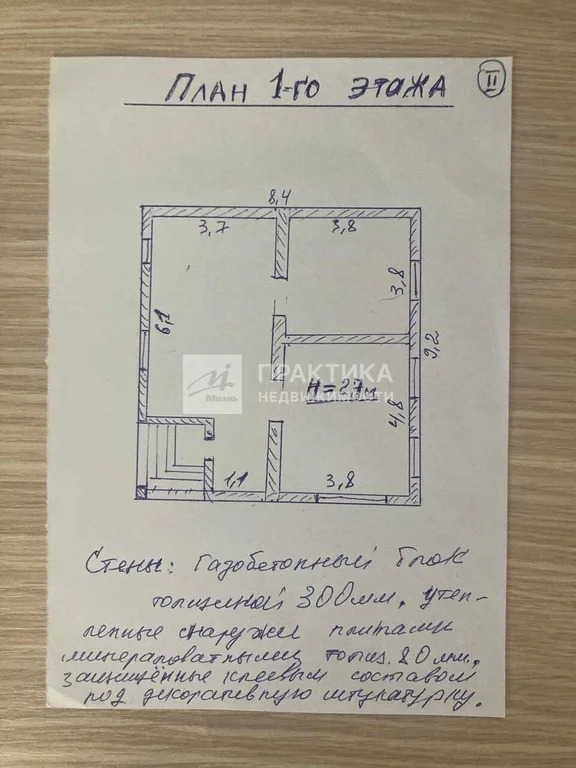 План 1-го этажа
II
8,4
3,7
3,8
6,1
3,8
9,2
ПРАКТИКА
НЕДВИЖИМОСТИ
Миэль
H=2,7м
4,8
1,1
3,8
Стены: газобетонный блок
толщиной 300мм, утеп-
ленные снаружи плитами
минераловатными толщ. 20мм,
защищённые клеевым составом
под декоративную штукатурку.